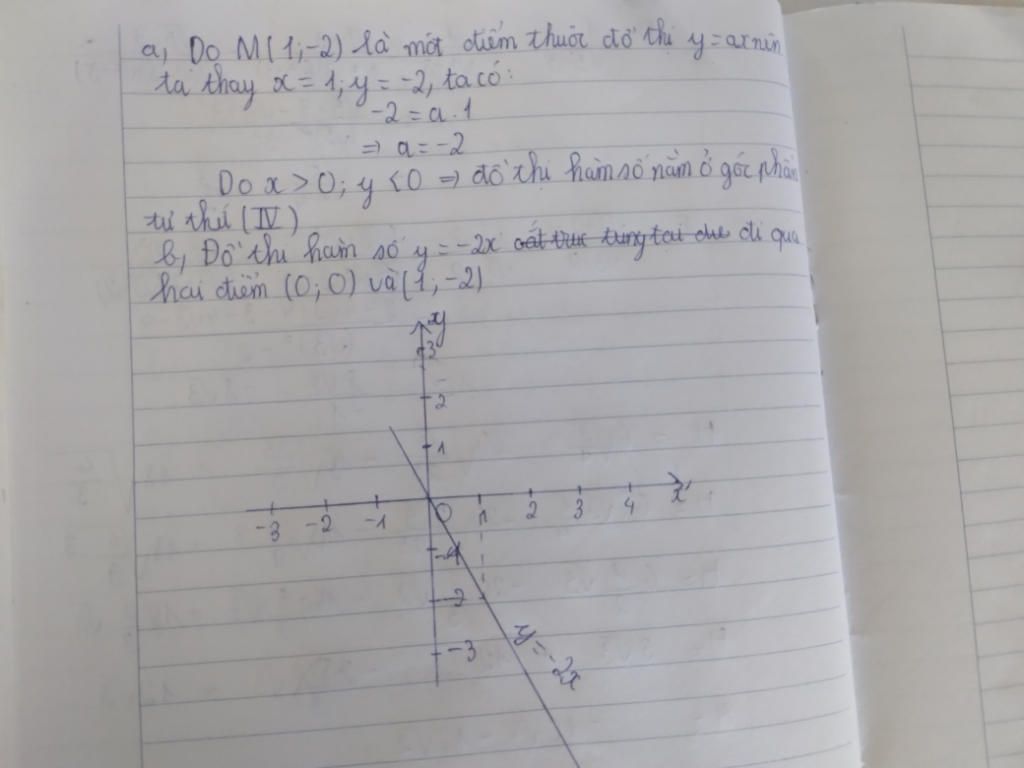 a, Do M(1;-2) là một điểm thuộc đồ thị y=ax nên
ta thay x = 1; y = -2, ta có:
-2 = a.1
⇒ a = -2
Do x > 0; y < 0 ⇒ đồ thị hàm số nằm ở góc phần
tư thứ (IV)
b, Đồ thị hàm số y = -2x cắt trục tung tại đi qua
hai điểm (0; 0) và (1; -2)
y
3
2
1
-3 -2 -1 O 1 2 3 4 x
-1
-2
-3
y = -2x